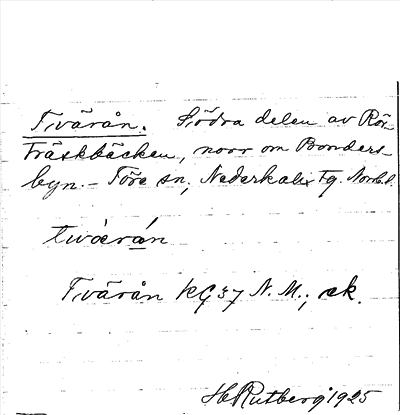 Tvärån. Södra delen av Rör-
träskbäcken, norr om Bonders-
byn. - Töre sn, Nederkalix tg. Norrb. l.
tvärán
Tvärån kç 37 N.M.; ek.
H. Rutberg 1925